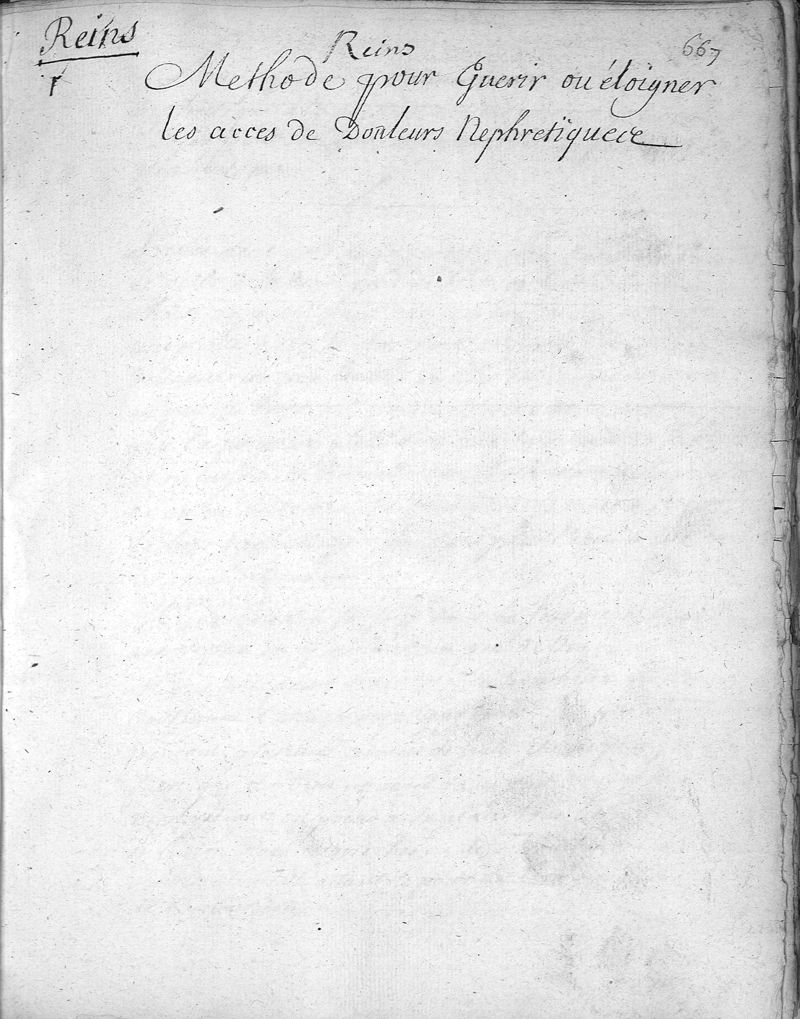 Reins
Reins
667
r
Methode pour Guerir ou éloigner
les acces de Douleurs Nephretiquece